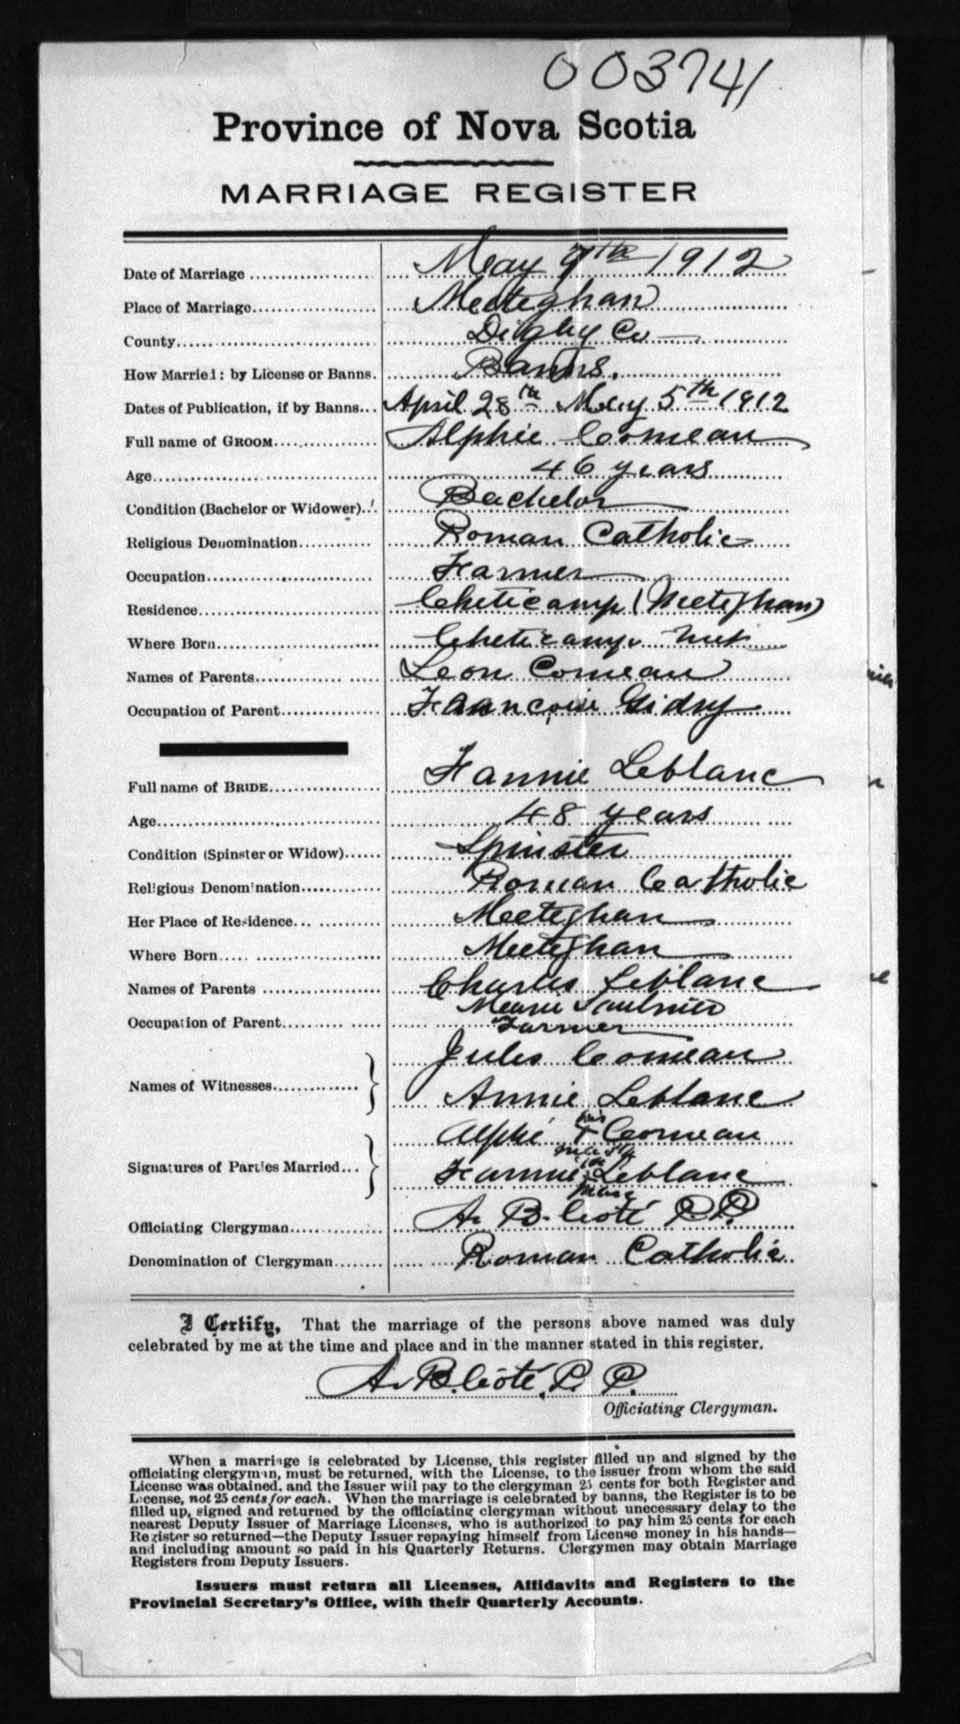 003741
Province of Nova Scotia
MARRIAGE REGISTER
Date of Marriage May 7th 1912
Place of Marriage Meteghan
County Digby Co
How Married: by License or Banns. Banns.
Dates of Publication, if by Banns... April 28th May 5th 1912
Full name of GROOM Alphie Comeau
Age 46 years
Condition (Bachelor or Widower) Bachelor
Religious Denomination Roman Catholic
Occupation Farmer
Residence Cheticamp (Meteghan)
Where Born Cheticamp
Names of Parents Leon Comeau
Occupation of Parent Francoise Gidry
Full name of BRIDE Fannie Leblanc
Age 48 years
Condition (Spinster or Widow) Spinster
Religious Denomination Roman Catholic
Her Place of Residence Meteghan
Where Born Meteghan
Names of Parents Charles Leblanc
Marie Saulnier
Occupation of Parent Farmer
Jules Comeau
Names of Witnesses
Annie Leblanc
Alphé his + mark Comeau
Signatures of Parties Married
Fannie + mark Leblanc
Officiating Clergyman A. B. Coté P.P.
Denomination of Clergyman Roman Catholic
I Certify, That the marriage of the persons above named was duly
celebrated by me at the time and place and in the manner stated in this register.
A. B. Coté, P. P.
Officiating Clergyman.
When a marriage is celebrated by License, this register filled up and signed by the
officiating clergyman, must be returned, with the License, to the issuer from whom the said
License was obtained, and the Issuer will pay to the clergyman 25 cents for both Register and
License, not 25 cents for each. When the marriage is celebrated by banns, the Register is to be
filled up, signed and returned by the officiating clergyman without unecessary delay to the
nearest Deputy Issuer of Marriage Licenses, who is authorized to pay him 25 cents for each
Register so returned—the Deputy Issuer repaying himself from License money in his hands—
and including amount so paid in his Quarterly Returns. Clergymen may obtain Marriage
Registers from Deputy Issuers.
Issuers must return all Licenses, Affidavits and Registers to the
Provincial Secretary's Office, with their Quarterly Accounts.